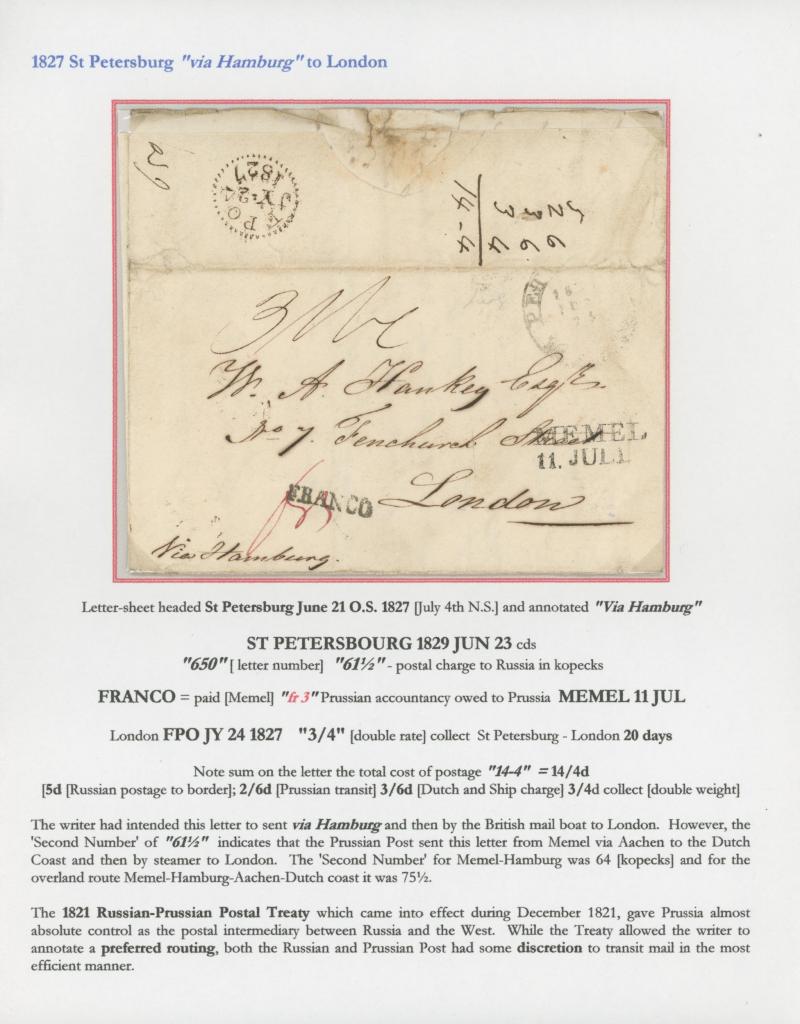 1827 St Petersburg "via Hamburg" to London
FPO
JY·24
1827
6 6 4
3
14-4
PET
W. A. Hankey Esqre
No 7. Fenchurch Street
MEMEL
11. JULI
FRANCO
London
Via Hamburg.
Letter-sheet headed St Petersburg June 21 O.S. 1827 [July 4th N.S.] and annotated "Via Hamburg"
ST PETERSBOURG 1829 JUN 23 cds
"650" [ letter number] "61½" - postal charge to Russia in kopecks
FRANCO = paid [Memel] "fr 3" Prussian accountancy owed to Prussia MEMEL 11 JUL
London FPO JY 24 1827 "3/4" [double rate] collect St Petersburg - London 20 days
Note sum on the letter the total cost of postage "14-4" = 14/4d
[5d [Russian postage to border]; 2/6d [Prussian transit] 3/6d [Dutch and Ship charge] 3/4d collect [double weight]
The writer had intended this letter to sent via Hamburg and then by the British mail boat to London. However, the
'Second Number' of "61½" indicates that the Prussian Post sent this letter from Memel via Aachen to the Dutch
Coast and then by steamer to London. The 'Second Number' for Memel-Hamburg was 64 [kopecks] and for the
overland route Memel-Hamburg-Aachen-Dutch coast it was 75½.
The 1821 Russian-Prussian Postal Treaty which came into effect during December 1821, gave Prussia almost
absolute control as the postal intermediary between Russia and the West. While the Treaty allowed the writer to
annotate a preferred routing, both the Russian and Prussian Post had some discretion to transit mail in the most
efficient manner.